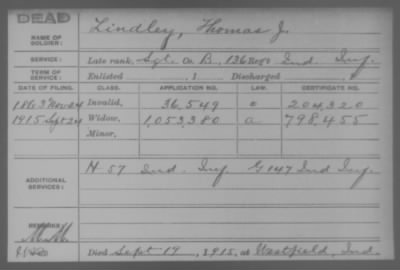 DEAD
NAME OF SOLDIER: Lindley, Thomas J.
SERVICE: Late rank, Sgt. Co. B, 136 Reg't Ind. Inf.
TERM OF SERVICE: Enlisted , 1 Discharged , 1
DATE OF FILING. CLASS. APPLICATION NO. LAW. CERTIFICATE NO.
Nov 24 Invalid, 36,549 204,320
1915 Sept 24 Widow, 1,053,380 a 798,455
Minor,
ADDITIONAL SERVICES: H 57 Ind. Inf. G 147 Ind Inf.
REMARKS:
Died Sept 19, 1915, at Westfield, Ind.